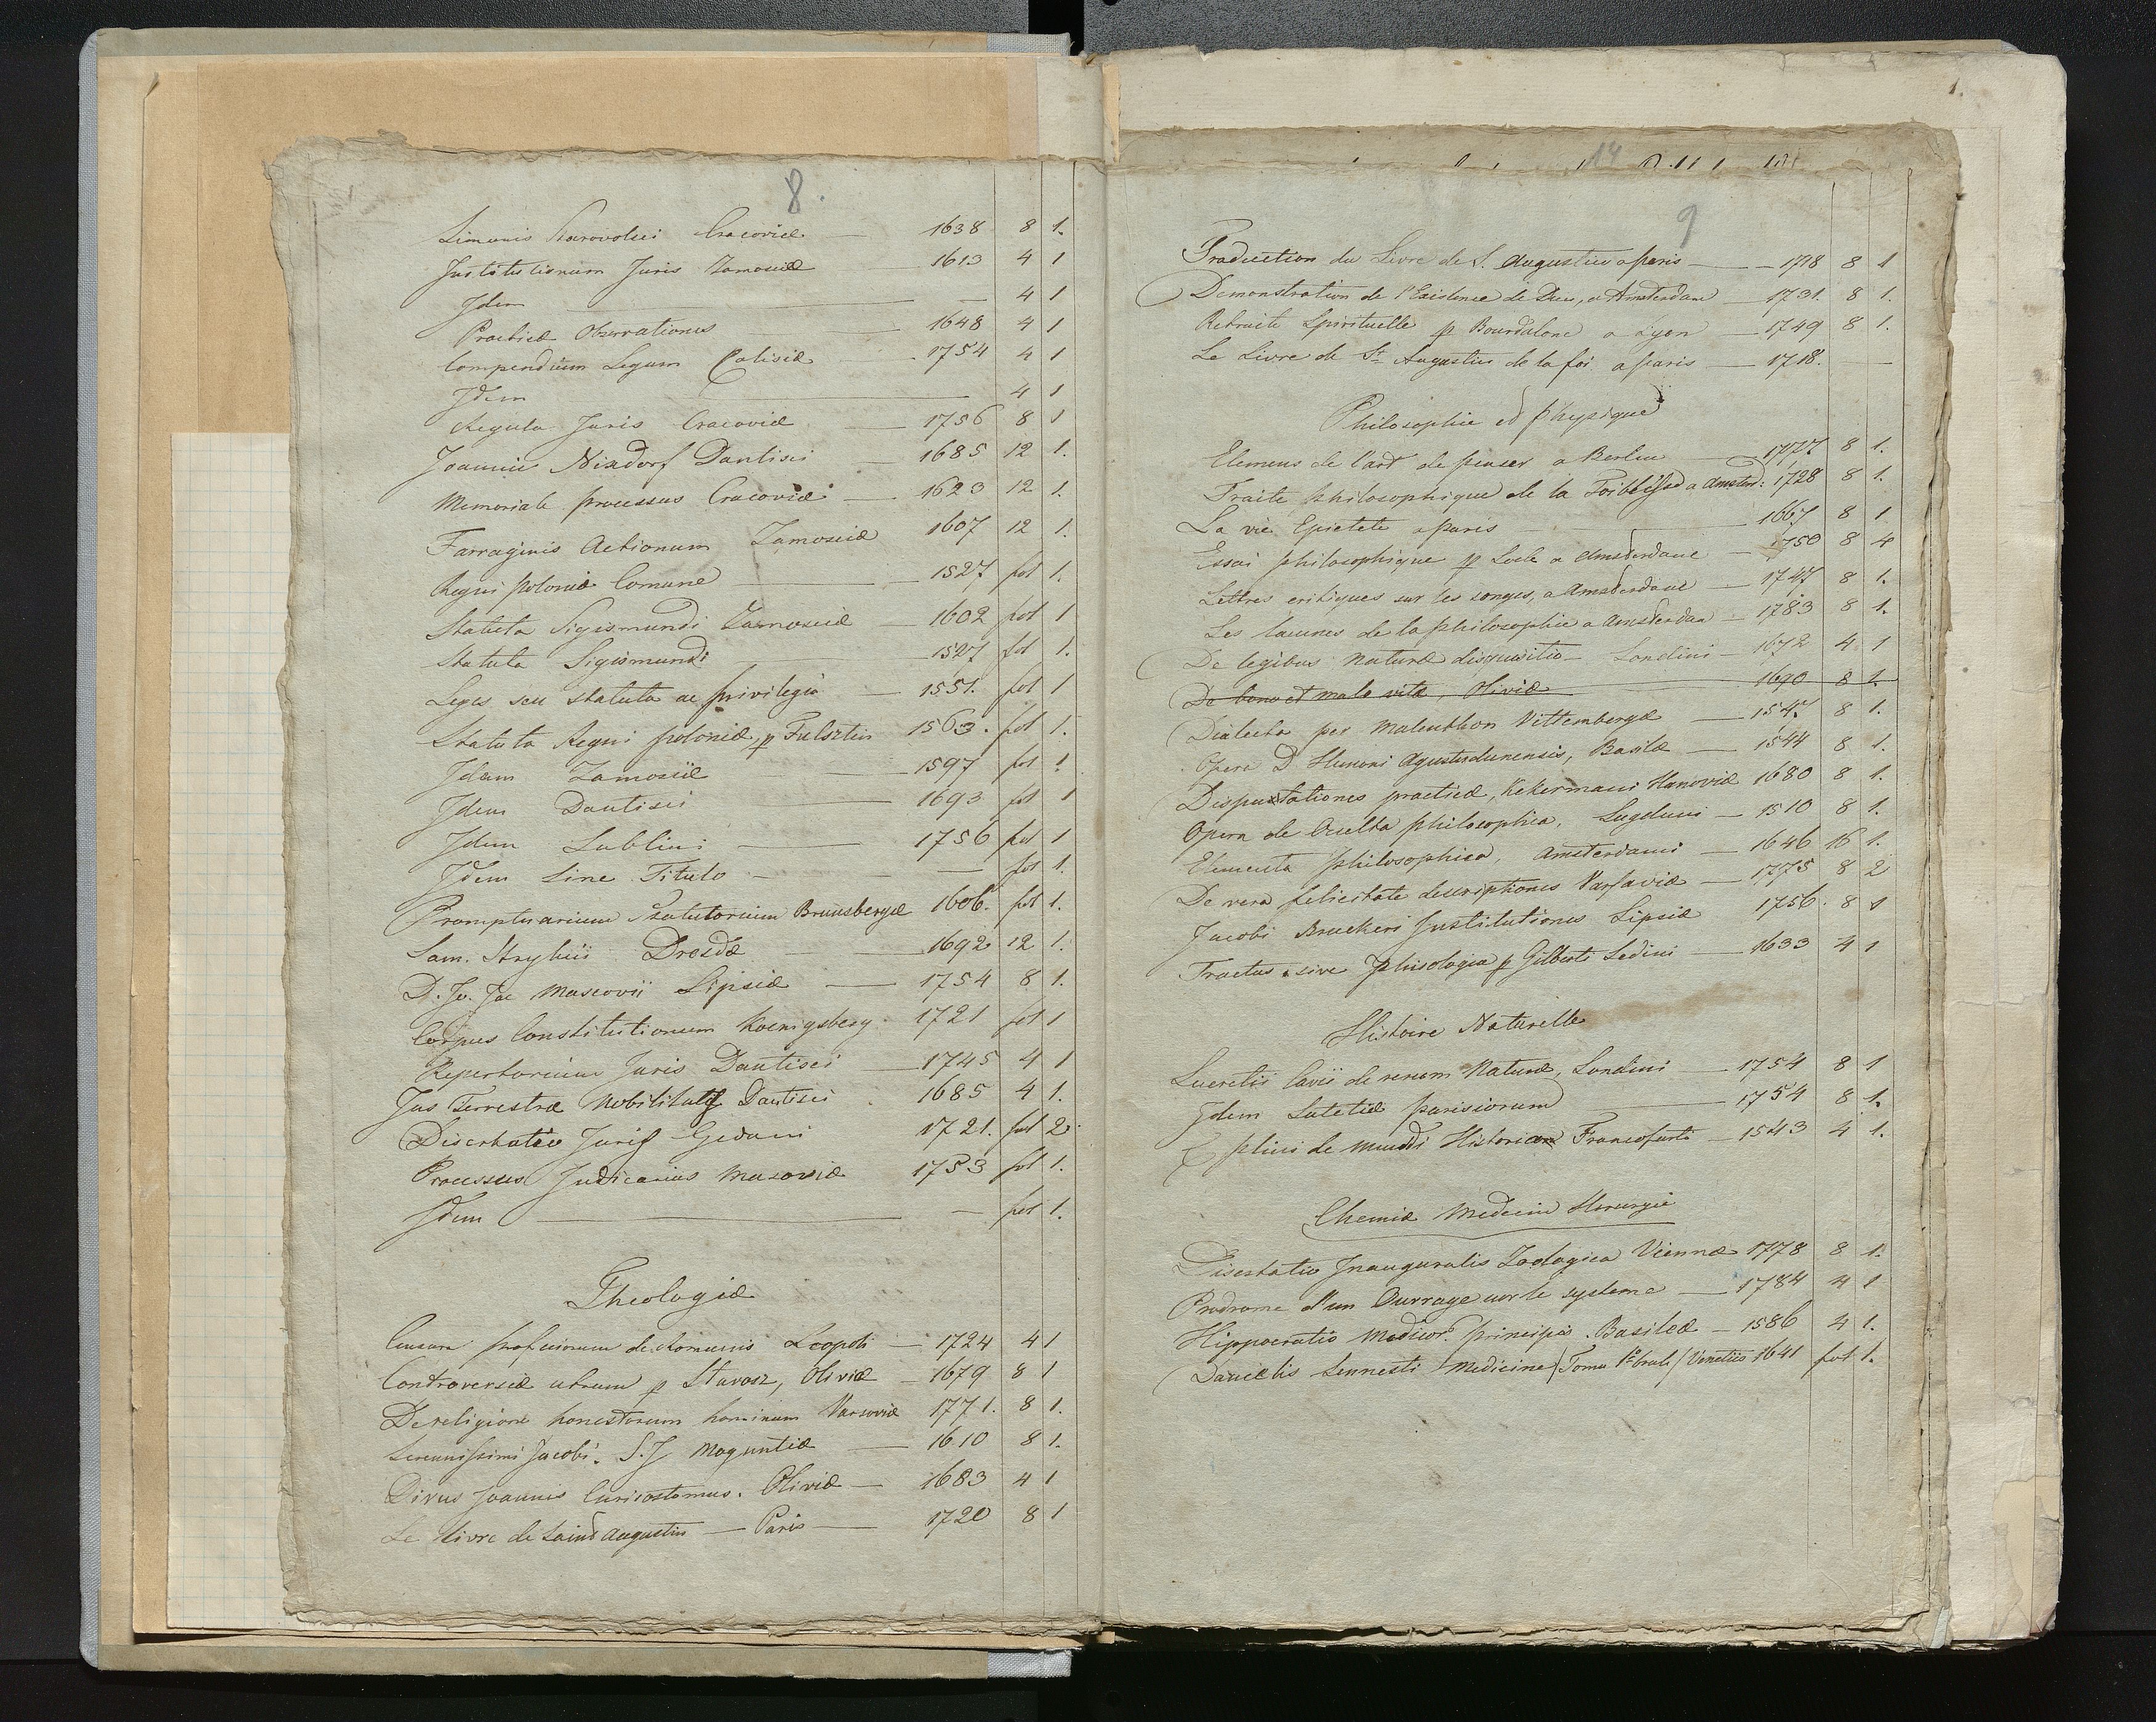 8.
Simonis Starovolsci Cracoviæ — 1638 8 1.
Institutionum Juris Zamosciæ 1613 4 1
Idem — 4 1
Practicæ Observationes 1648 4 1
Compendium Legum Calisiæ 1754 4 1
Idem 4 1
Regula Juris Cracoviæ 1756 8 1
Joannis Nixdorf Dantisci 1685 12 1.
Memoriale processus Cracoviæ — 1623 12 1.
Farraginis Actionum Zamosciæ 1607 12 1.
Regni poloniæ Comune — 1527 fol 1.
Statuta Sigismundi Zamosciæ — 1602 fol 1
Statuta Sigismundi — 1527 fol 1.
Leges seu statuta ac privilegia — 1551. fol 1
Statuta Regni poloniæ, p Fulsztin 1563. fol 1.
Idem Zamosciæ — 1597 fol 1
Idem Dantisci — 1693 fol 1
Idem Lublini — 1756 fol 1
Idem Sine Titulo — — fol 1.
Promptuarium Statutorium Brunsbergæ 1606. fol 1.
Sam. Strykii Dresdæ — 1692 12 1.
D. Jo. Jac Mascovii Lipsiæ — 1754 8 1.
Corpus Constitutionum Koenigsberg 1721 fol 1
Repertorium Juris Dantisci 1745 4 1
Jus Terrestræ Nobilitatis Dantisci 1685 4 1.
Disertatio Juris Gedani 1721. fol 2.
Processus Judicarius Masoviæ 1753 fol 1.
Idem — — fol 1.
Theologiæ
Censura profesiorum de Leopoli — 1724 4 1
Controversiæ utrum p Starosz, Olivæ — 1679 8 1
De religione honestorum hominum Varsoviæ 1771. 8 1.
Serenissimi Jacobi. S.J Moguntiæ — 1610 8 1.
Divus Joannes Crisostomus. Olivæ — 1683 4 1
Le Livre de Saint Augustin — Paris — 1720 8 1
1.
14
9
Traduction du Livre de S. Augustin a paris — 1718 8 1
Demonstration de l'Existence de Dieu, a Amsterdam — 1731. 8 1.
Retraite Spirituelle p Bourdalone a Lyon — 1749 8 1.
Le Livre de St Augustin de la foi a paris — 1718. —
Philosophie et physique
Elemens de l'art de penser a Berlin — 1777 8 1.
Traite philosophique de la Foiblesse a Amsterd: 1728 8 1.
La vie Epictete a paris — 1667 8 1
Essai philosophique p Lock a Amsterdame — 1750 8 4
Lettres critiques sur les songes, a Amsterdame — 1747 8 1.
Les lacunes de la philosophie a Amsterdam — 1783 8 1.
De legibus naturæ disquisitio — Londini — 1672 4 1
De bono et malo vitæ, Olivæ — 1690 8 1.
Dialecta per Malenthon Vittembergæ — 1547 8 1.
Opera D. Hunoni Agustudunensis, Basilæ — 1544 8 1.
Disputationes practicæ, Kekermani Hanoviæ 1680 8 1.
Opera de Occulta philosophica, Lugduni — 1510 8 1.
Elementa philosophica, Amsterdami — 1646 16 1.
De vera felicitate descriptiones Varsaviæ — 1775 8 2
Jacobi Bruckeri Institutiones Lipsiæ 1756. 8 1
Tractus sive phisologia p Gilberti Sedini — 1633 4 1
Histoire Naturelle
Lucretii Cavii de rerum Naturæ, Londini — 1754 8 1
Idem Lutetiæ parisiorum — 1754 8 1.
C plini de mundi Historiæ Francofurti — 1543 4 1.
Chemiæ Medecin Hirurgie
Disertatio Inauguralis Zoologica Viennæ 1778 8 1.
Prodrome d'un Ouvrage sur le systeme — 1784 4 1
Hippocratis Medicor. principis. Basileæ — 1586 4 1.
Danielis Sennesti Medicine (Tomus Venetiis 1641 fol 1.